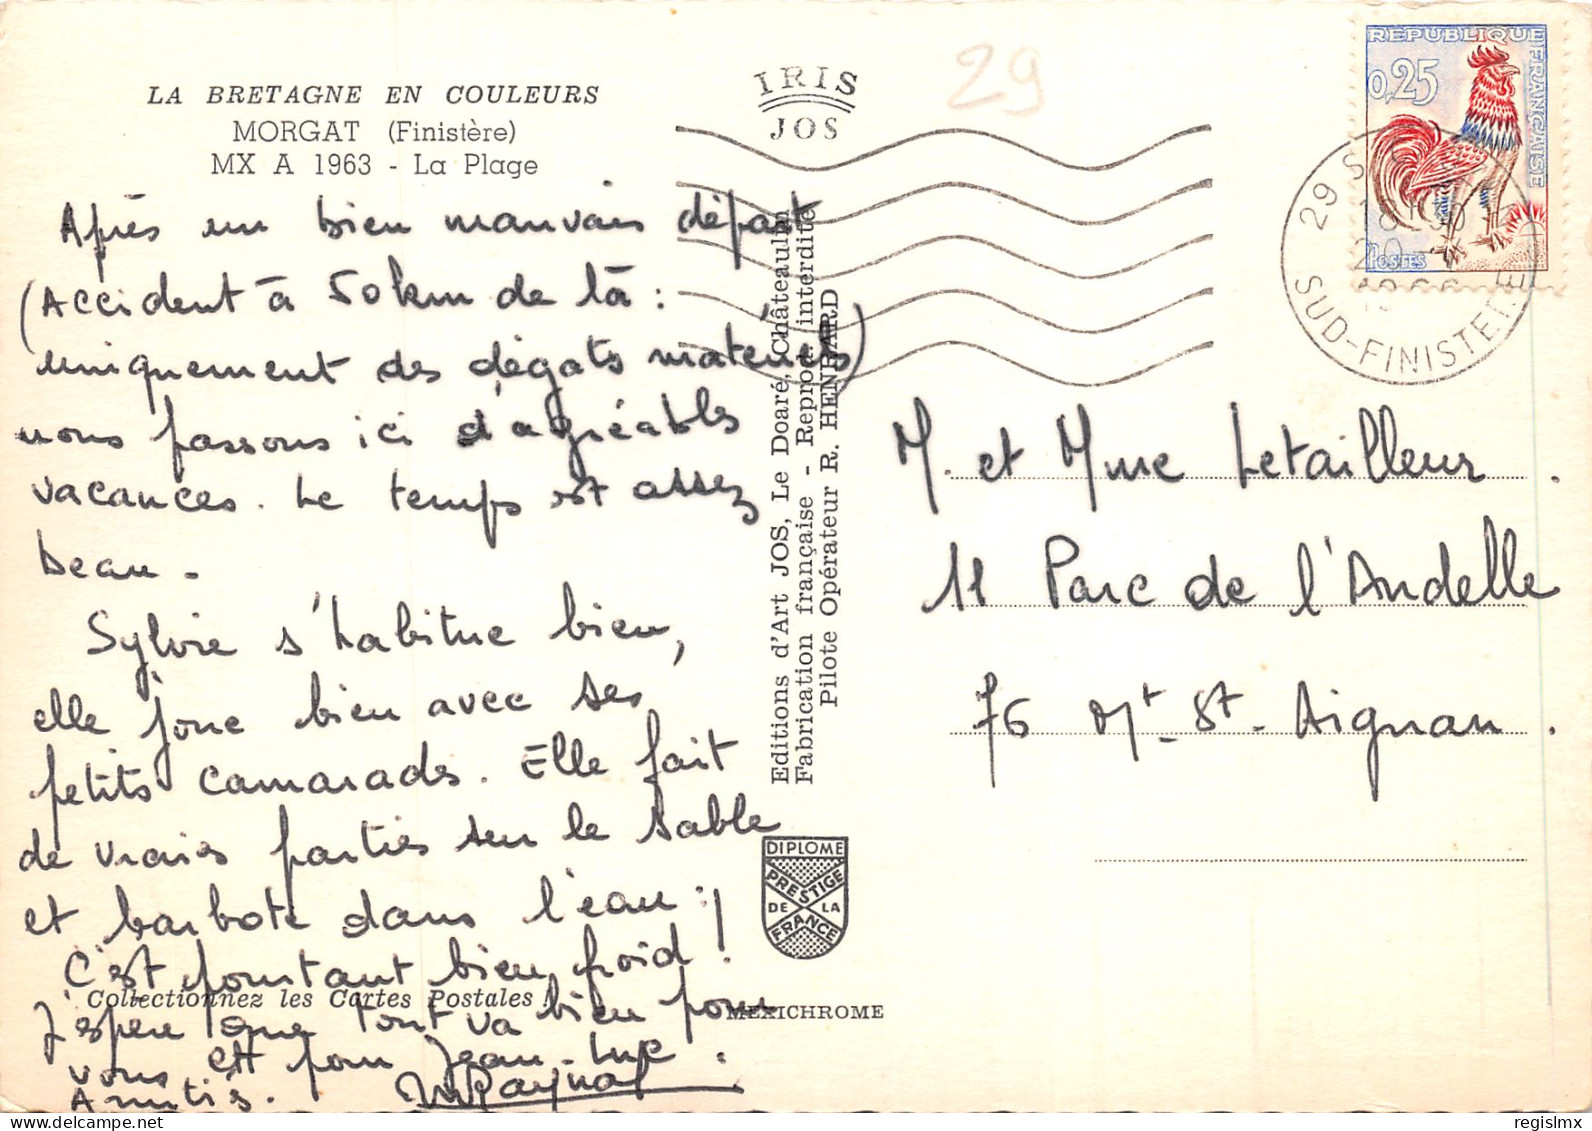 LA BRETAGNE EN COULEURS
MORGAT (Finistère)
MX A 1963 - La Plage
Après un bien mauvais départ
(Accident à 50 km de là :
uniquement des dégats matériels)
nous passons ici d'agréables
vacances. Le temps est assez
beau -
Sylvie s'habitue bien,
elle joue bien avec ses
petits camarades. Elle fait
de vraies parties sur le sable
et barbote dans l'eau :
C'est pourtant bien froid !
Collectionnez les Cartes Postales !
J'espère que tout va bien pour
vous et pour Jean-Luc.
Amitiés. Raynal
IRIS
JOS
Editions d'Art JOS, Le Doaré, Châteaulin
Fabrication française - Reprod. interdite
Pilote Opérateur R. HENRARD
DIPLOME
PRESTIGE
DE LA
FRANCE
MEXICHROME
29
REPUBLIQUE
FRANÇAISE
0,25
POSTES
29
SUD-FINISTERE
M. et Mme Letailleur.
11 Parc de l'Andelle
76 Mt-St-Aignan.
© regislmx